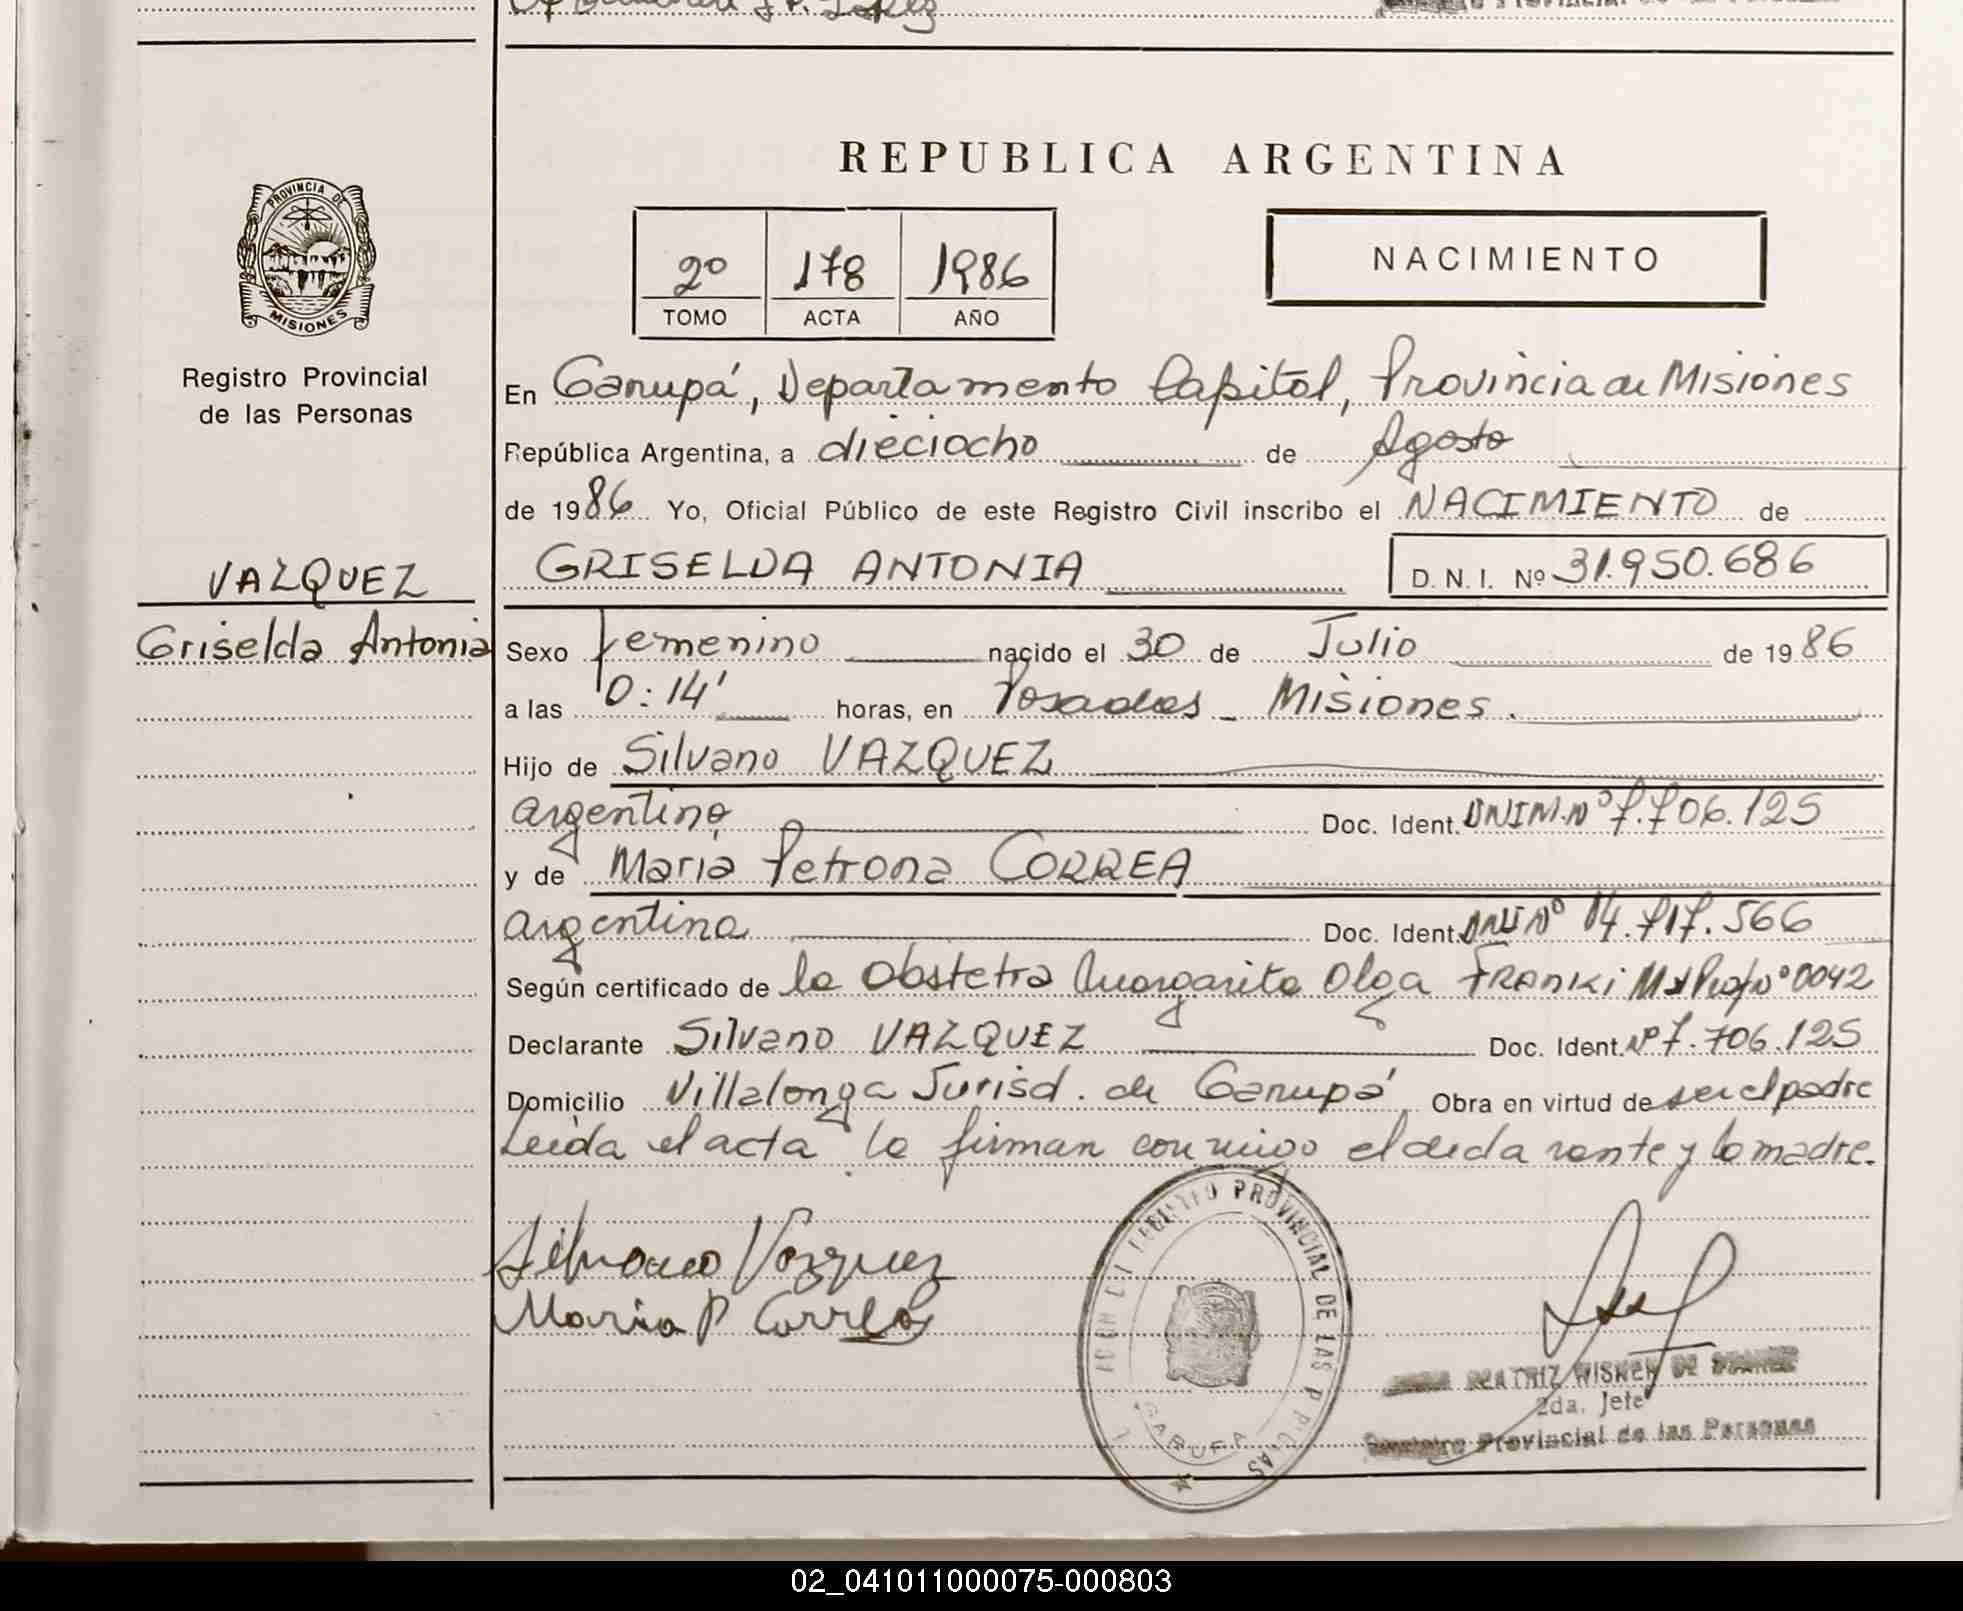 REPUBLICA ARGENTINA
PROVINCIA DE
MISIONES
Registro Provincial
de las Personas
2º 178 1986
TOMO ACTA AÑO
NACIMIENTO
En Garupá, Departamento Capital, Provincia de Misiones
República Argentina, a dieciocho de Agosto
de 1986 Yo, Oficial Público de este Registro Civil inscribo el NACIMIENTO de
VAZQUEZ
GRISELDA ANTONIA D. N. I. Nº 31.950.686
Griselda Antonia
Sexo femenino nacido el 30 de Julio de 1986
a las 0:14' horas, en Posadas - Misiones.
Hijo de Silvano VAZQUEZ
argentino Doc. Ident. DNIM.Nº 7.706.125
y de Maria Petrona CORREA
argentina Doc. Ident. DNI Nº 14.717.566
Según certificado de la Obstetra Margarita Olga FRANKi Nº 0042
Declarante Silvano VAZQUEZ Doc. Ident. Nº 7.706.125
Domicilio Villalonga Jurisd. de Garupá Obra en virtud de ser el padre
Leida el acta la firman conmigo el declarante y la madre.
Silvano Vazquez
Maria P Correa
REGISTRO PROVINCIAL DE LAS P
GARUPA
BEATRIZ WISNER DE
2da. Jefe
Registro Provincial de las Personas
02_041011000075-000803